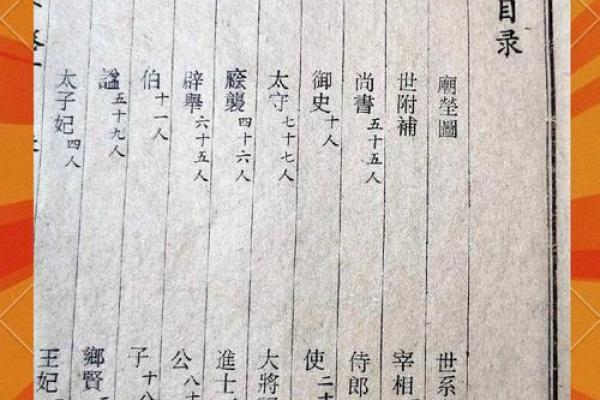 目录
廟塋圖 世系
世附補 宰相
尚書五十五人 侍郎
御史十人 使二十
太守七十七人 大將
廕襲四十六人 進士
辟舉六十五人 公八十
伯十一人 子十八
諡五十九人 鄉賢
太子妃四人 王妃